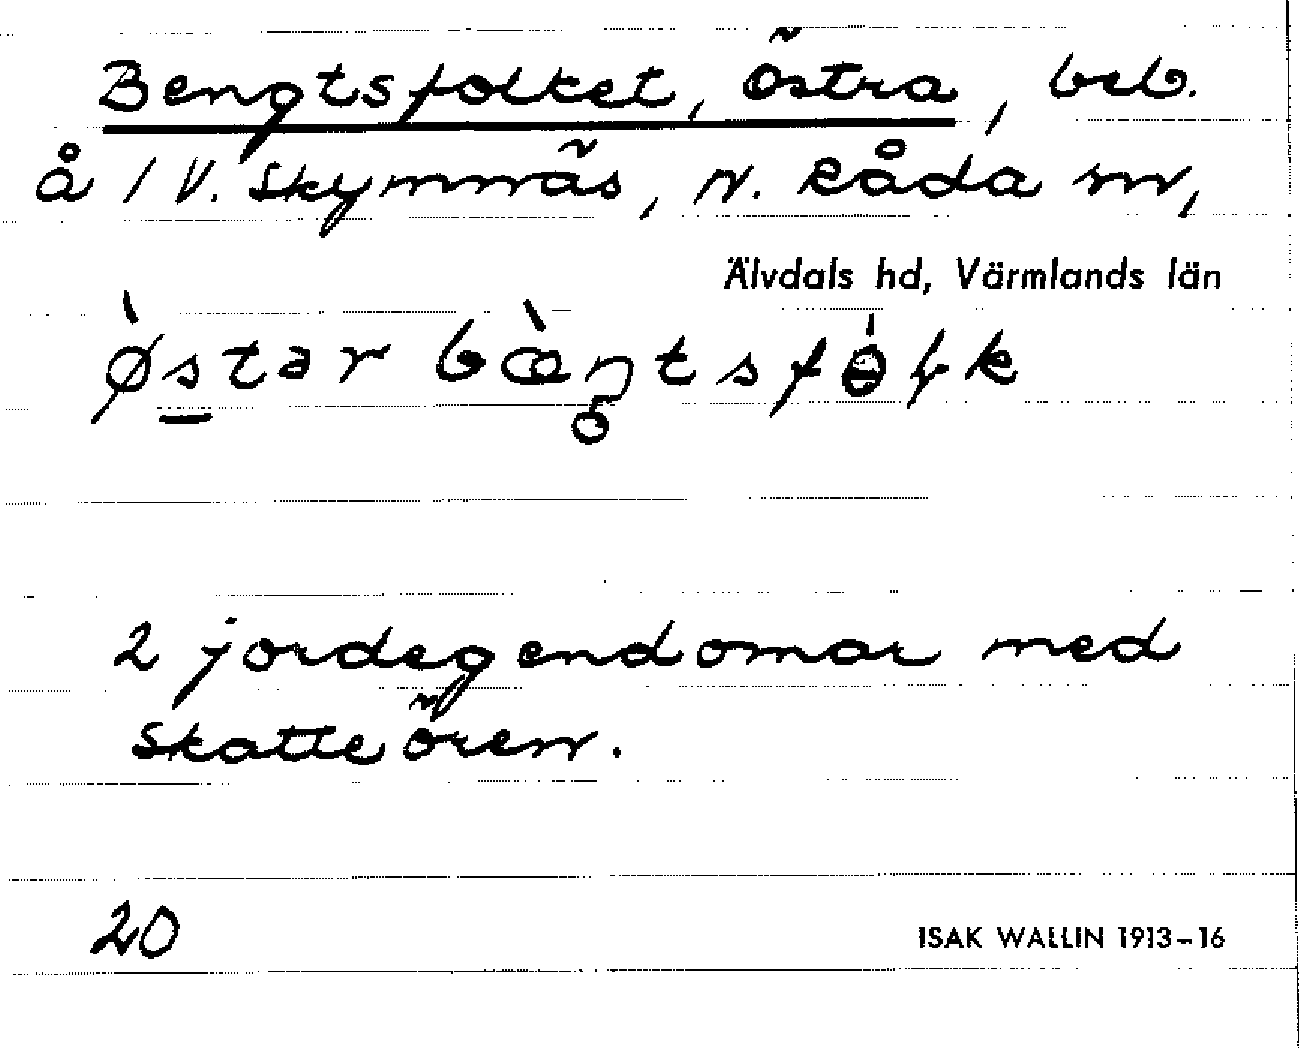 Bengtsfolket, Östra, beb.
å 1 V. Skymnäs, N. Råda sn,
Älvdals hd, Värmlands län
ø̀star bæ̀ŋ̥tsfɵ́ɽk
2 jordegendomar med
skatteören.
20
ISAK WALLIN 1913-16